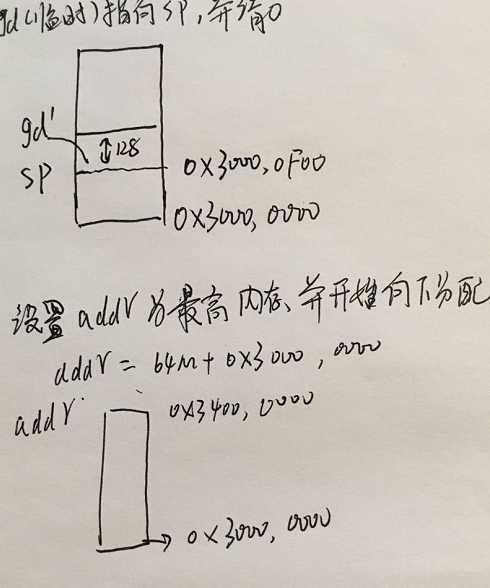 gd(临时)指向SP,并清0
gd'
128
SP
0x3000,0F00
0x3000,0000
设置 addr 为最高内存、并开始向下分配
addr = 64M + 0x3000,0000
addr
0x3400,0000
0x3000,0000